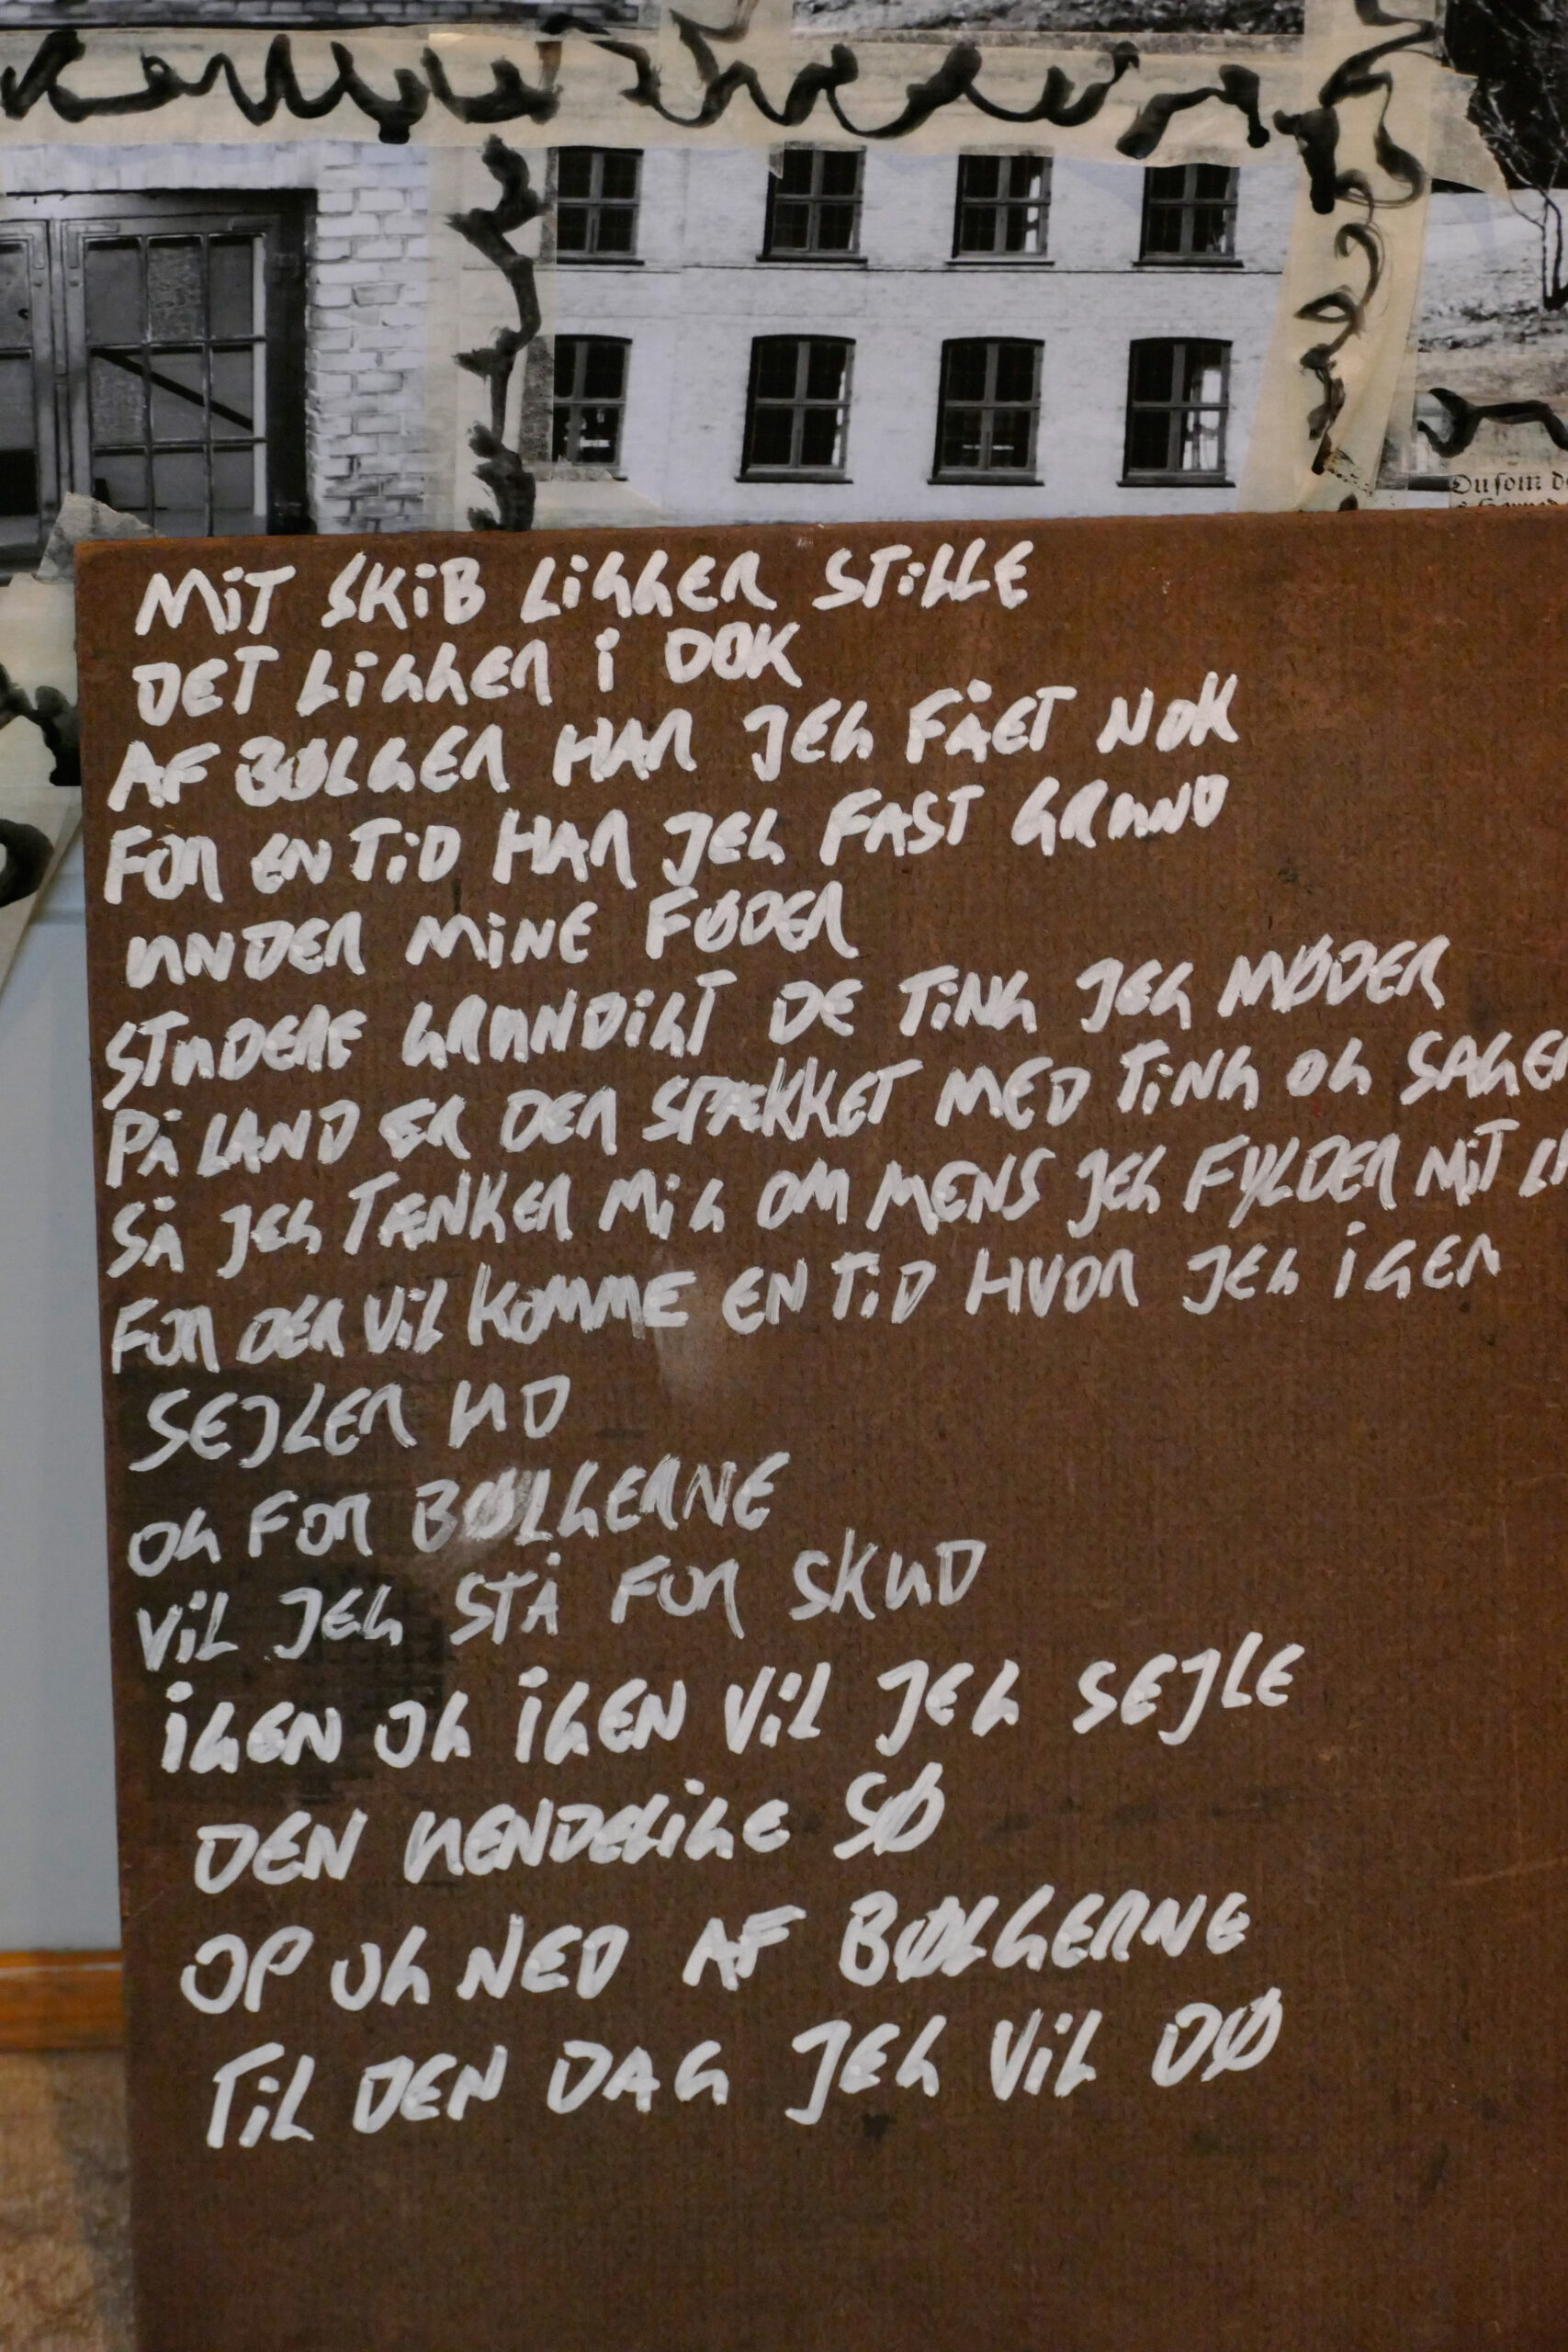 Du som
MiT SKiB LiGGER STiLLE
DET LiGGER i DOK
AF BØLGER HAR JEG FÅET NOK
FOR EN TiD HAR JEG FAST GRUND
UNDER MiNE FØDER
STUDERE GRUNDiGT DE TiNG JEG MØDER
PÅ LAND ER DER SPÆKKET MED TiNG OG SAGER
SÅ JEG TÆNKER MiG OM MENS JEG FYLDER MiT
FOR DER ViL KOMME EN TiD HVOR JEG iGEN
SEJLER UD
OG FOR BØLGERNE
ViL JEG STÅ FOR SKUD
iGEN OG iGEN ViL JEG SEJLE
DEN UENDELiGE SØ
OP OG NED AF BØLGERNE
TiL DEN DAG JEG ViL DØ